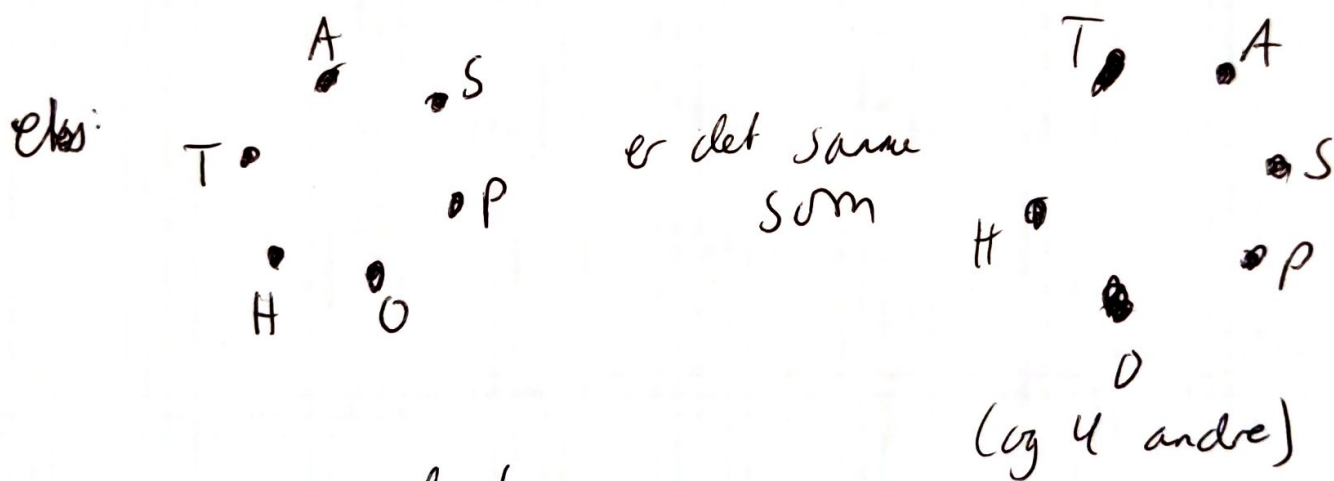 A
S
T
P
H
O
eks:
er det samme
som
T
A
S
H
P
O
(og 4 andre)